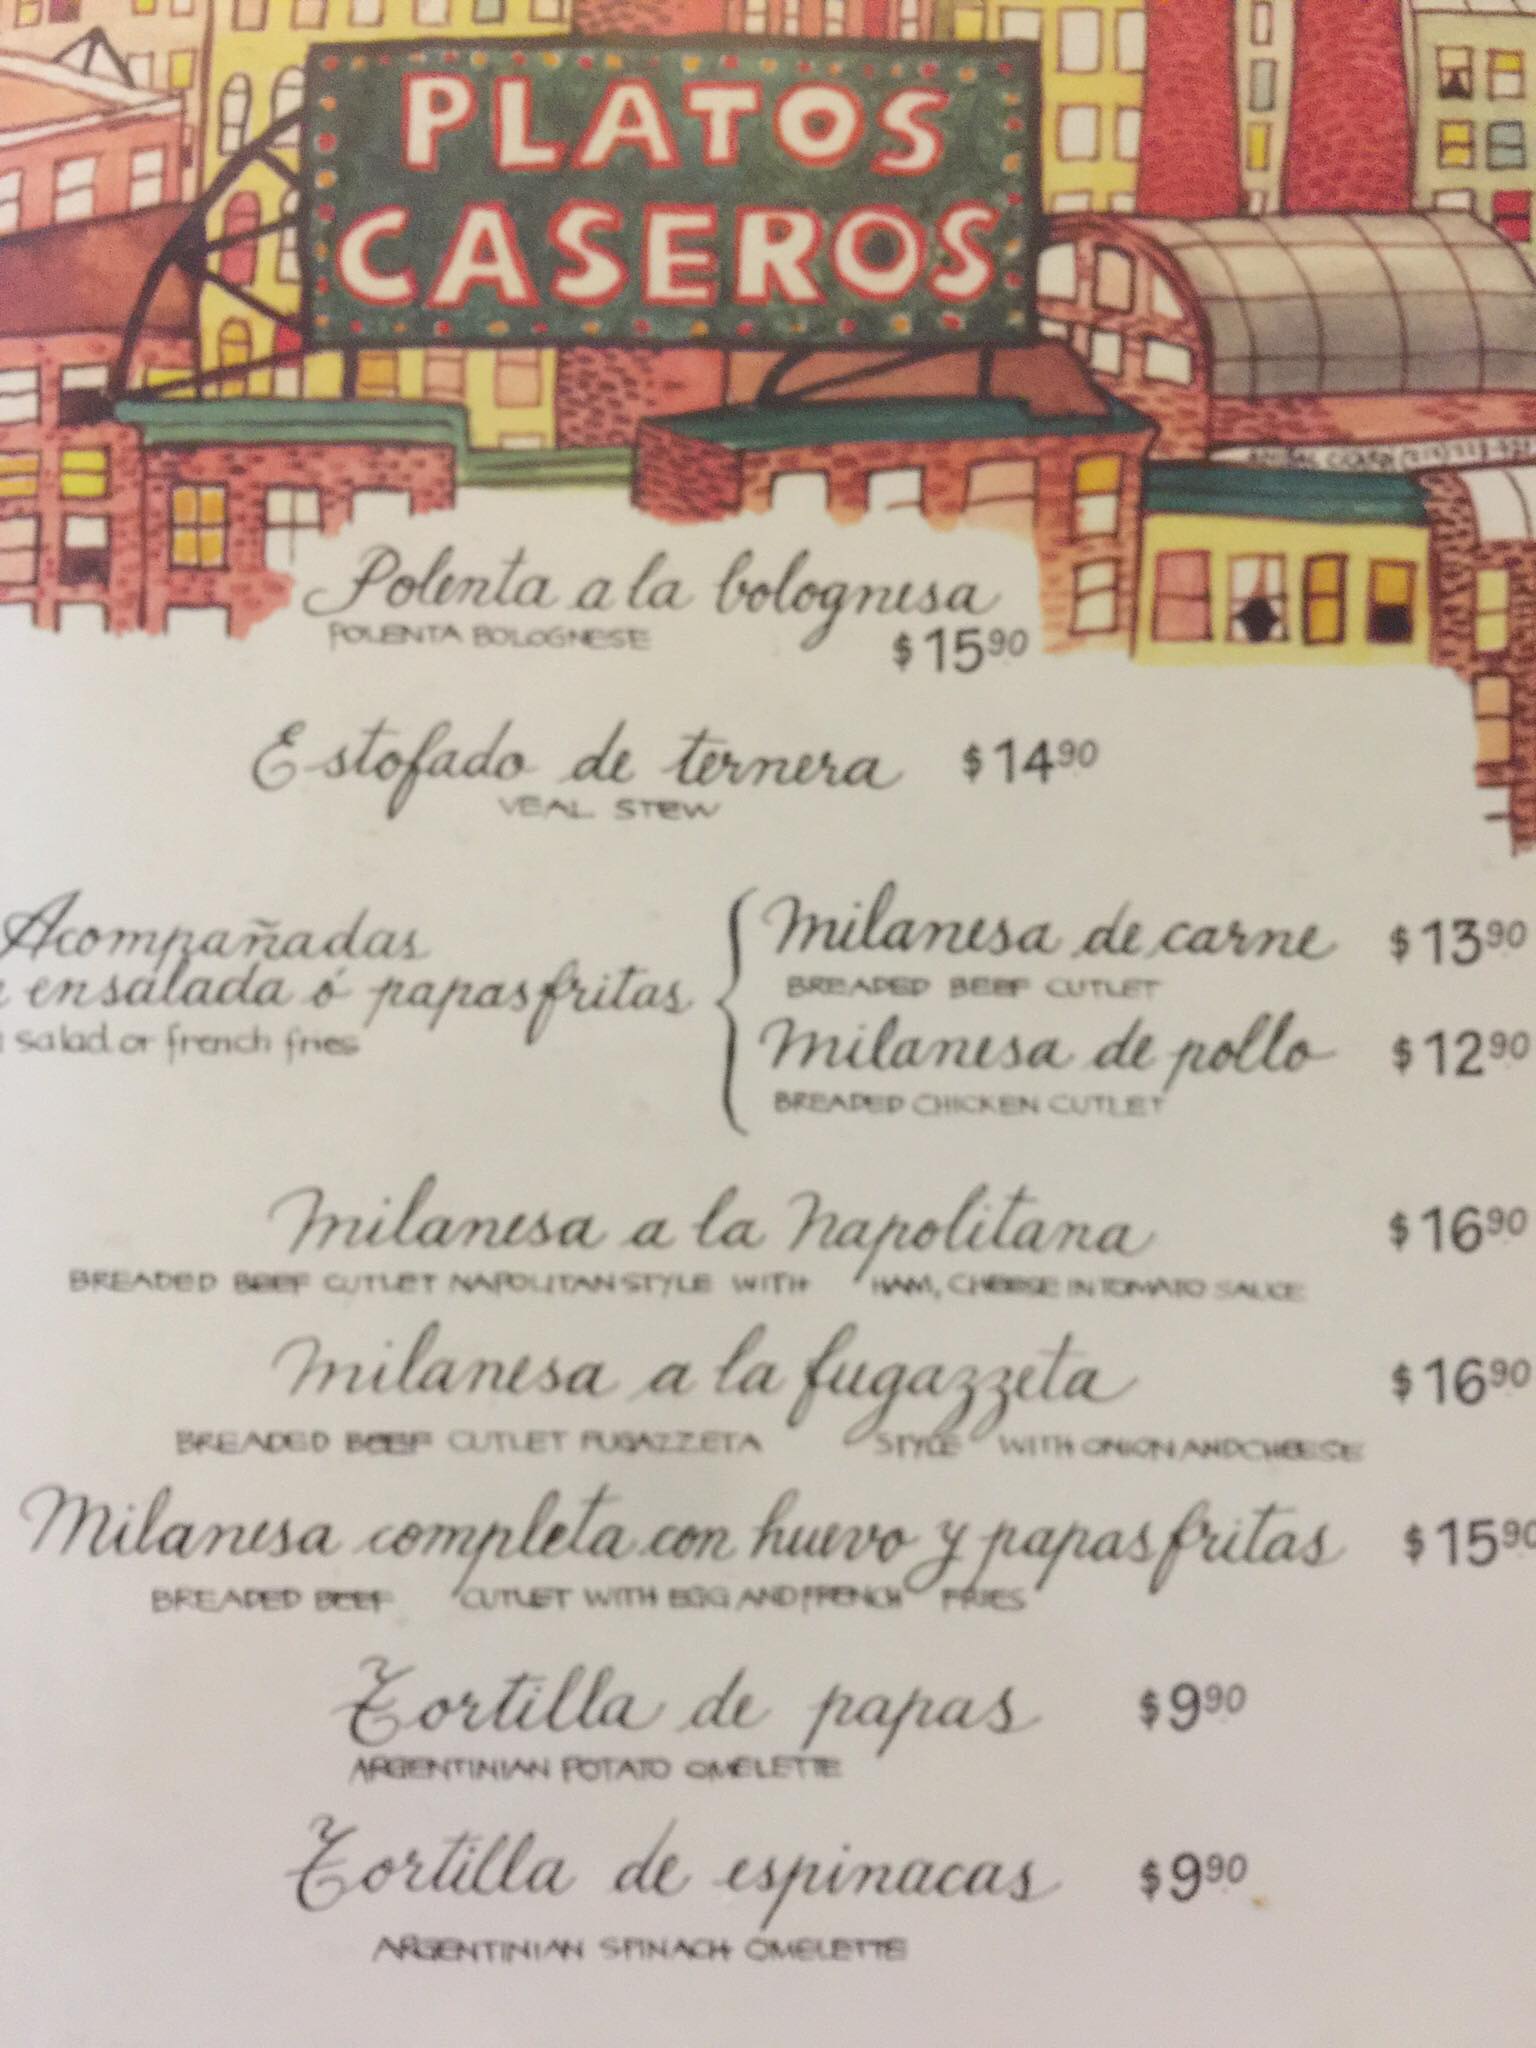 PLATOS
CASEROS
Polenta a la bolognesa
POLENTA BOLOGNESE
$15.90
Estofado de ternera $14.90
VEAL STEW
Acompañadas
ensalada ó papas fritas
salad or french fries
Milanesa de carne $13.90
BREADED BEEF CUTLET
Milanesa de pollo $12.90
BREADED CHICKEN CUTLET
Milanesa a la Napolitana $16.90
BREADED BEEF CUTLET NAPOLITAN STYLE WITH HAM, CHEESE IN TOMATO SAUCE
Milanesa a la fugazzeta $16.90
BREADED BEEF CUTLET FUGAZZETA STYLE WITH ONION AND CHEESE
Milanesa completa con huevo y papas fritas $15.90
BREADED BEEF CUTLET WITH EGG AND FRENCH FRIES
Tortilla de papas $9.90
ARGENTINIAN POTATO OMELETTE
Tortilla de espinacas $9.90
ARGENTINIAN SPINACH OMELETTE